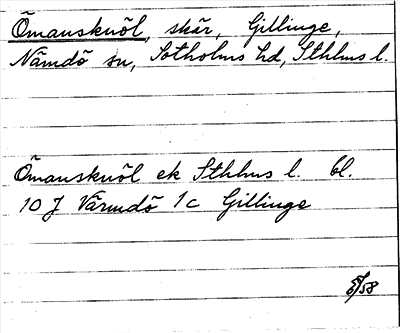 Ömansknöl, skär, Gillinge,
Nämdö sn, Sotholms hd, Sthlms l.
Ömansknöl ek Sthlms l. bl.
10 J Värmdö 1c Gillinge
/58